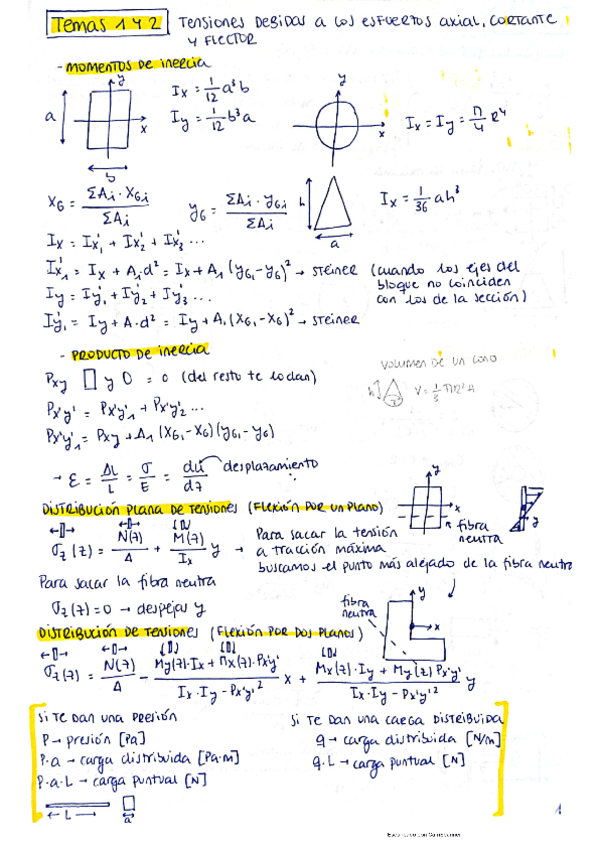 Temas 1 y 2 Tensiones debidas a los esfuertos axial, cortante
y flector
- Momentos de inercia
a y x b
Ix = 1/12 a³b
Iy = 1/12 b³a
y x
Ix = Iy = π/4 R⁴
XG = ΣAi·XGi / ΣAi
yG = ΣAi·yGi / ΣAi
h a
Ix = 1/36 ah³
Ix = Ix'₁ + Ix'₂ + Ix'₃ ...
Ix'₁ = Ix + A₁d² = Ix + A₁(yG₁-yG)² → Steiner (cuando los ejes del
bloque no coinciden
con los de la sección)
Iy = Iy'₁ + Iy'₂ + Iy'₃ ...
Iy'₁ = Iy + A·d² = Iy + A₁(XG₁-XG)² → Steiner
- Producto de inercia
Pxy ▯ y O = 0 (del resto te lo dan)
Volumen de un cono
h r V = 1/3 πr²h
Px'y' = Px'y'₁ + Px'y'₂ ...
Px'y'₁ = Pxy + A₁(XG₁-XG)(yG₁-yG)
→ ε = ΔL/L = σ/E = du/dz desplazamiento
Distribución plana de tensiones (Flexión por un plano)
y x fibra
neutra
σz(z) = N(z)/A + M(z)/Ix y → Para sacar la tensión
a tracción máxima
buscamos el punto más alejado de la fibra neutra
Para sacar la fibra neutra
σz(z) = 0 → despejar y
fibra
neutra y x
Distribución de tensiones (Flexión por dos planos)
σz(z) = N(z)/A - My(z)·Ix + Mx(z)·Px'y' / Ix·Iy - Px'y'² x + Mx(z)·Iy + My(z)Px'y' / Ix·Iy - Px'y'² y
Si te dan una presión
P → presión [Pa]
P·a → carga distribuida [Pa·m]
P·a·L → carga puntual [N]
← L → a
Si te dan una carga distribuida
q → carga distribuida [N/m]
q·L → carga puntual [N]
1
Escaneado con CamScanner